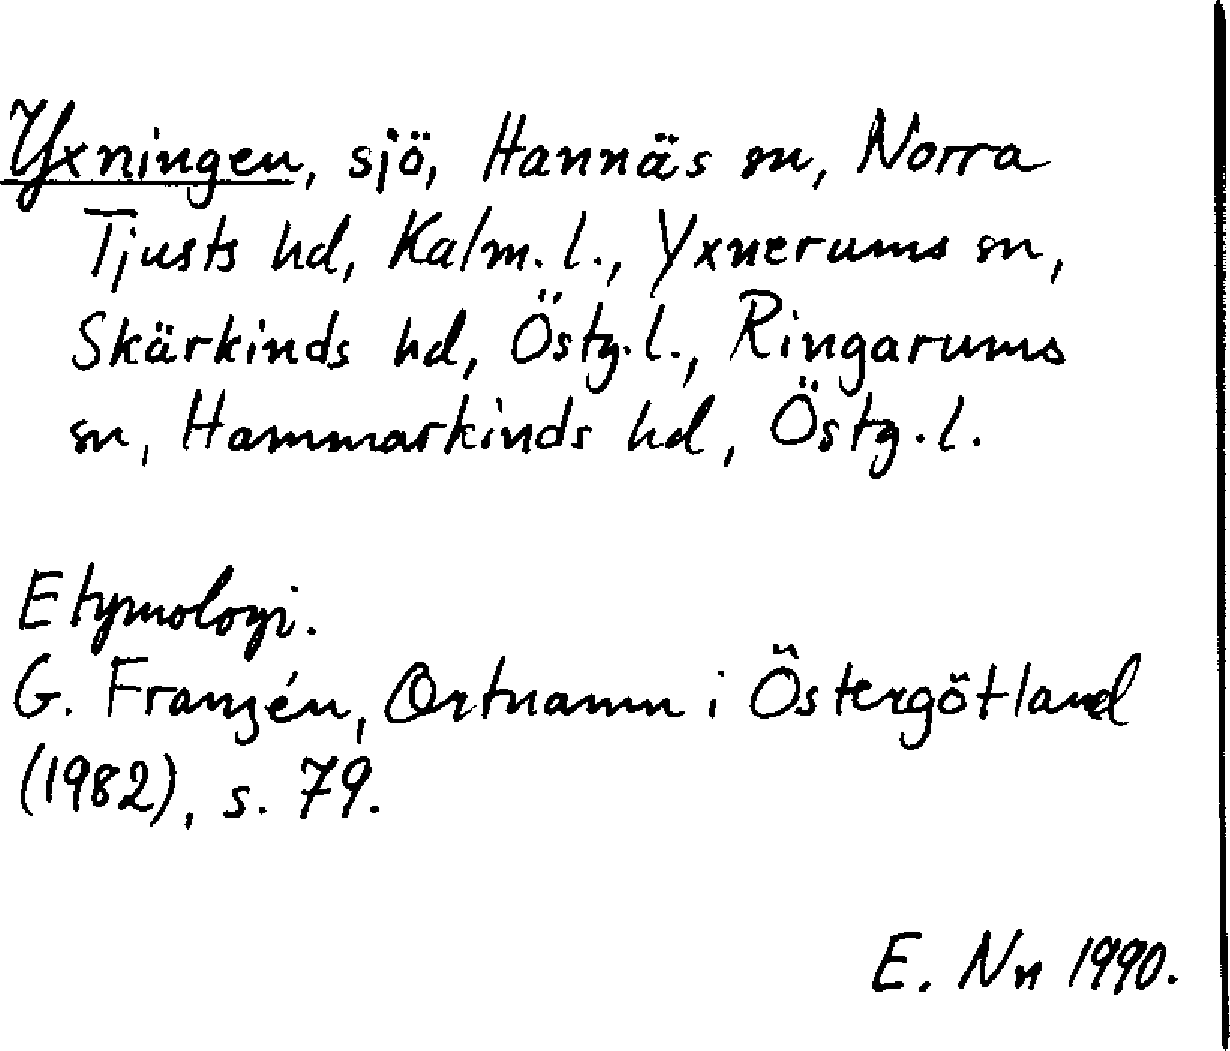 Yxningen, sjö, Hannäs sn, Norra
Tjusts hd, Kalm. l., Yxnerums sn,
Skärkinds hd, Östg. l., Ringarums
sn, Hammarkinds hd, Östg. l.
Etymologi.
G. Franzén, Ortnamn i Östergötland
(1982), s. 79.
E. Nn 1990.